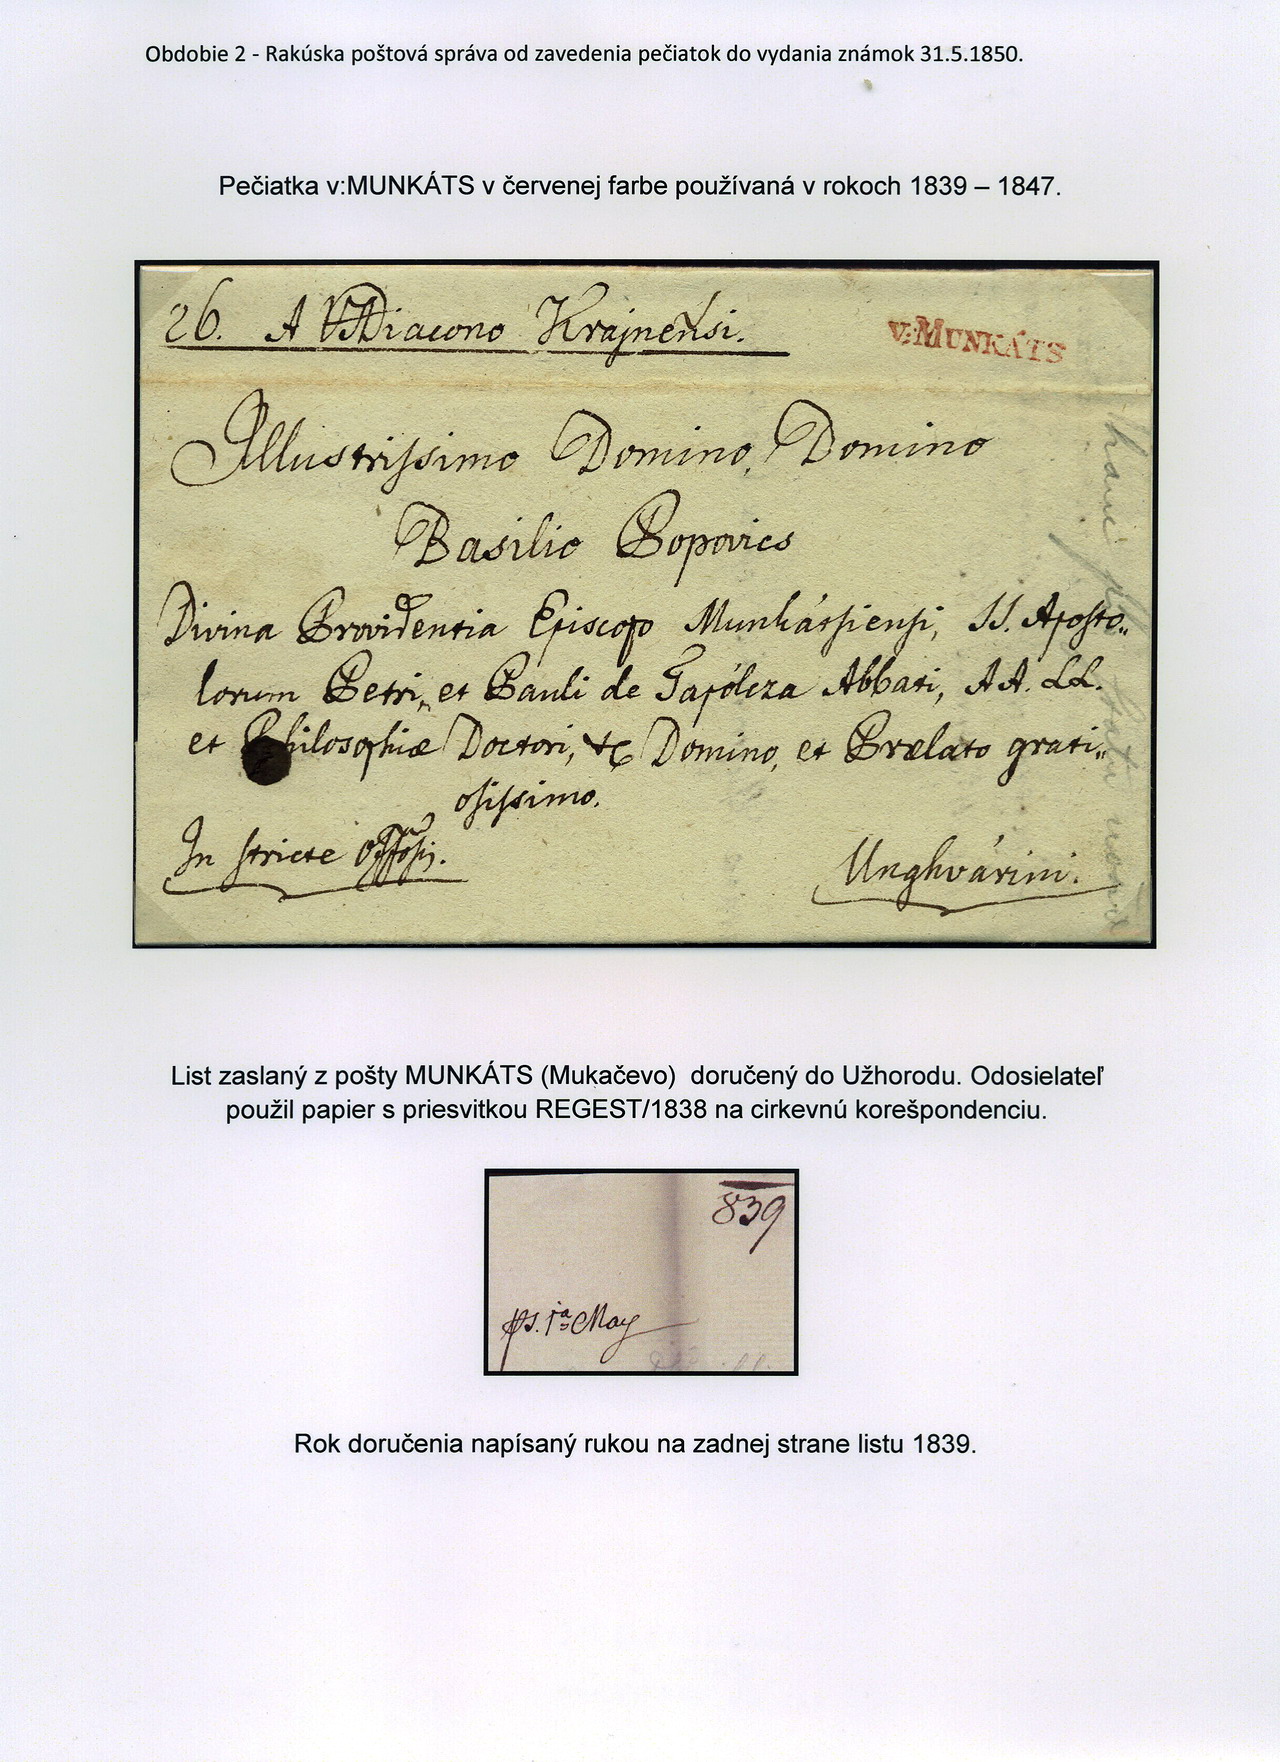 Obdobie 2 - Rakúska poštová správa od zavedenia pečiatok do vydania známok 31.5.1850.
Pečiatka v:MUNKÁTS v červenej farbe používaná v rokoch 1839 – 1847.
26. A VADiacono Krajnensi.
v:MUNKÁTS
Illustrissimo Domino, Domino
Basilio Popovics
Divina Providentia Episcopo Munkátsiensi, SS. Aposto„
lorum Petri„ et Pauli de Tapólcza Abbati, AA. LL.
et Philosophiæ Doctori, &c Domino, et Prælato grati„
osissimo.
In stricte
Unghvárini.
List zaslaný z pošty MUNKÁTS (Mukačevo) doručený do Užhorodu. Odosielateľ
použil papier s priesvitkou REGEST/1838 na cirkevnú korešpondenciu.
839
ps. 1a May
Rok doručenia napísaný rukou na zadnej strane listu 1839.